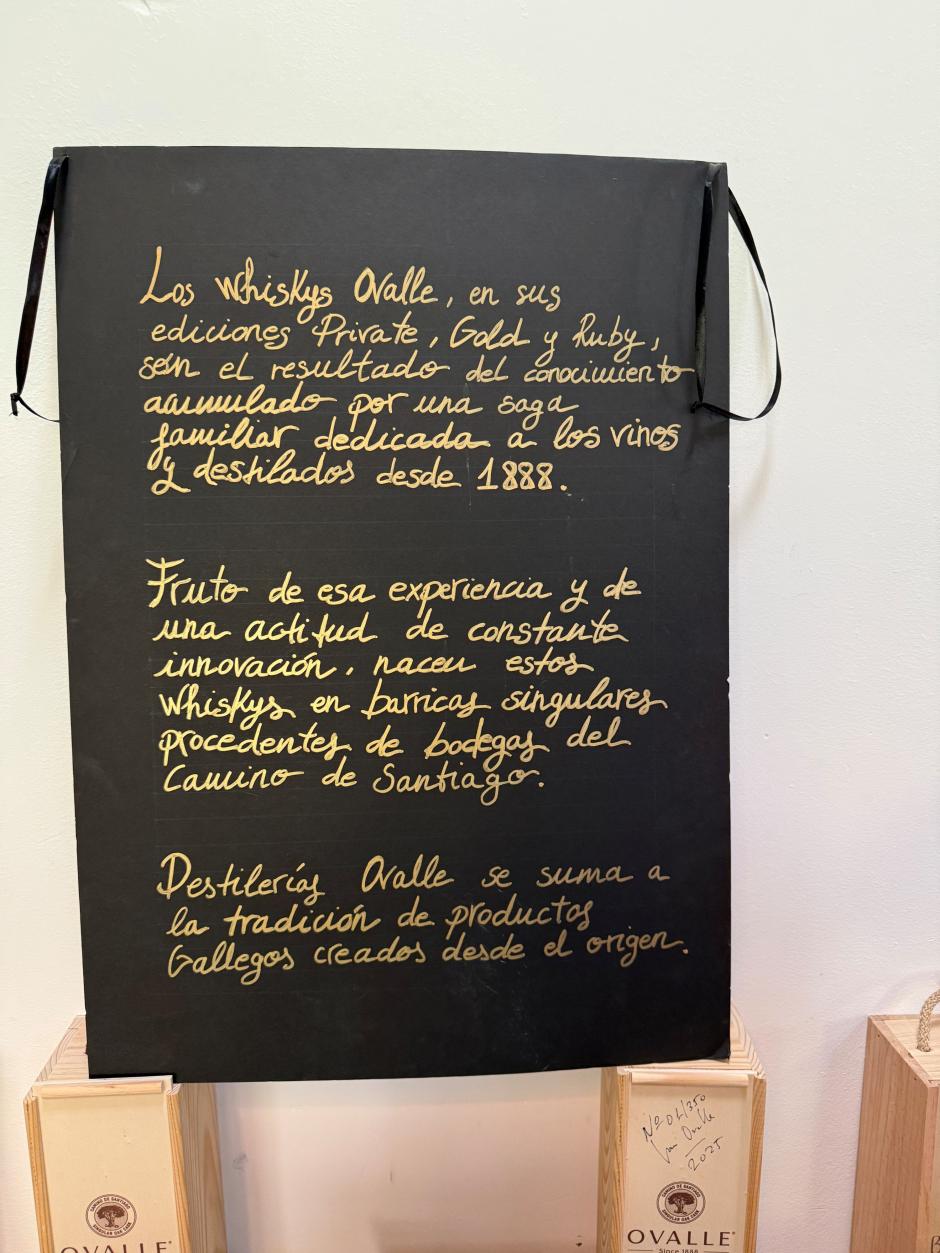 Los whiskys Ovalle, en sus
ediciones Private, Gold y Ruby,
són el resultado del conocimiento
acumulado por una saga
familiar dedicada a los vinos
y destilados desde 1888.
Fruto de esa experiencia y de
una actitud de constante
innovación, nacen estos
whiskys en barricas singulares
procedentes de bodegas del
Camino de Santiago.
Destilerías Ovalle se suma a
la tradición de productos
Gallegos creados desde el origen.
CAMINO DE SANTIAGO
SINGULAR OAK CASK
OVALLE®
Nº 01/350
Ovalle
2025
CAMINO DE SANTIAGO
SINGULAR OAK CASK
OVALLE®
Since 1888